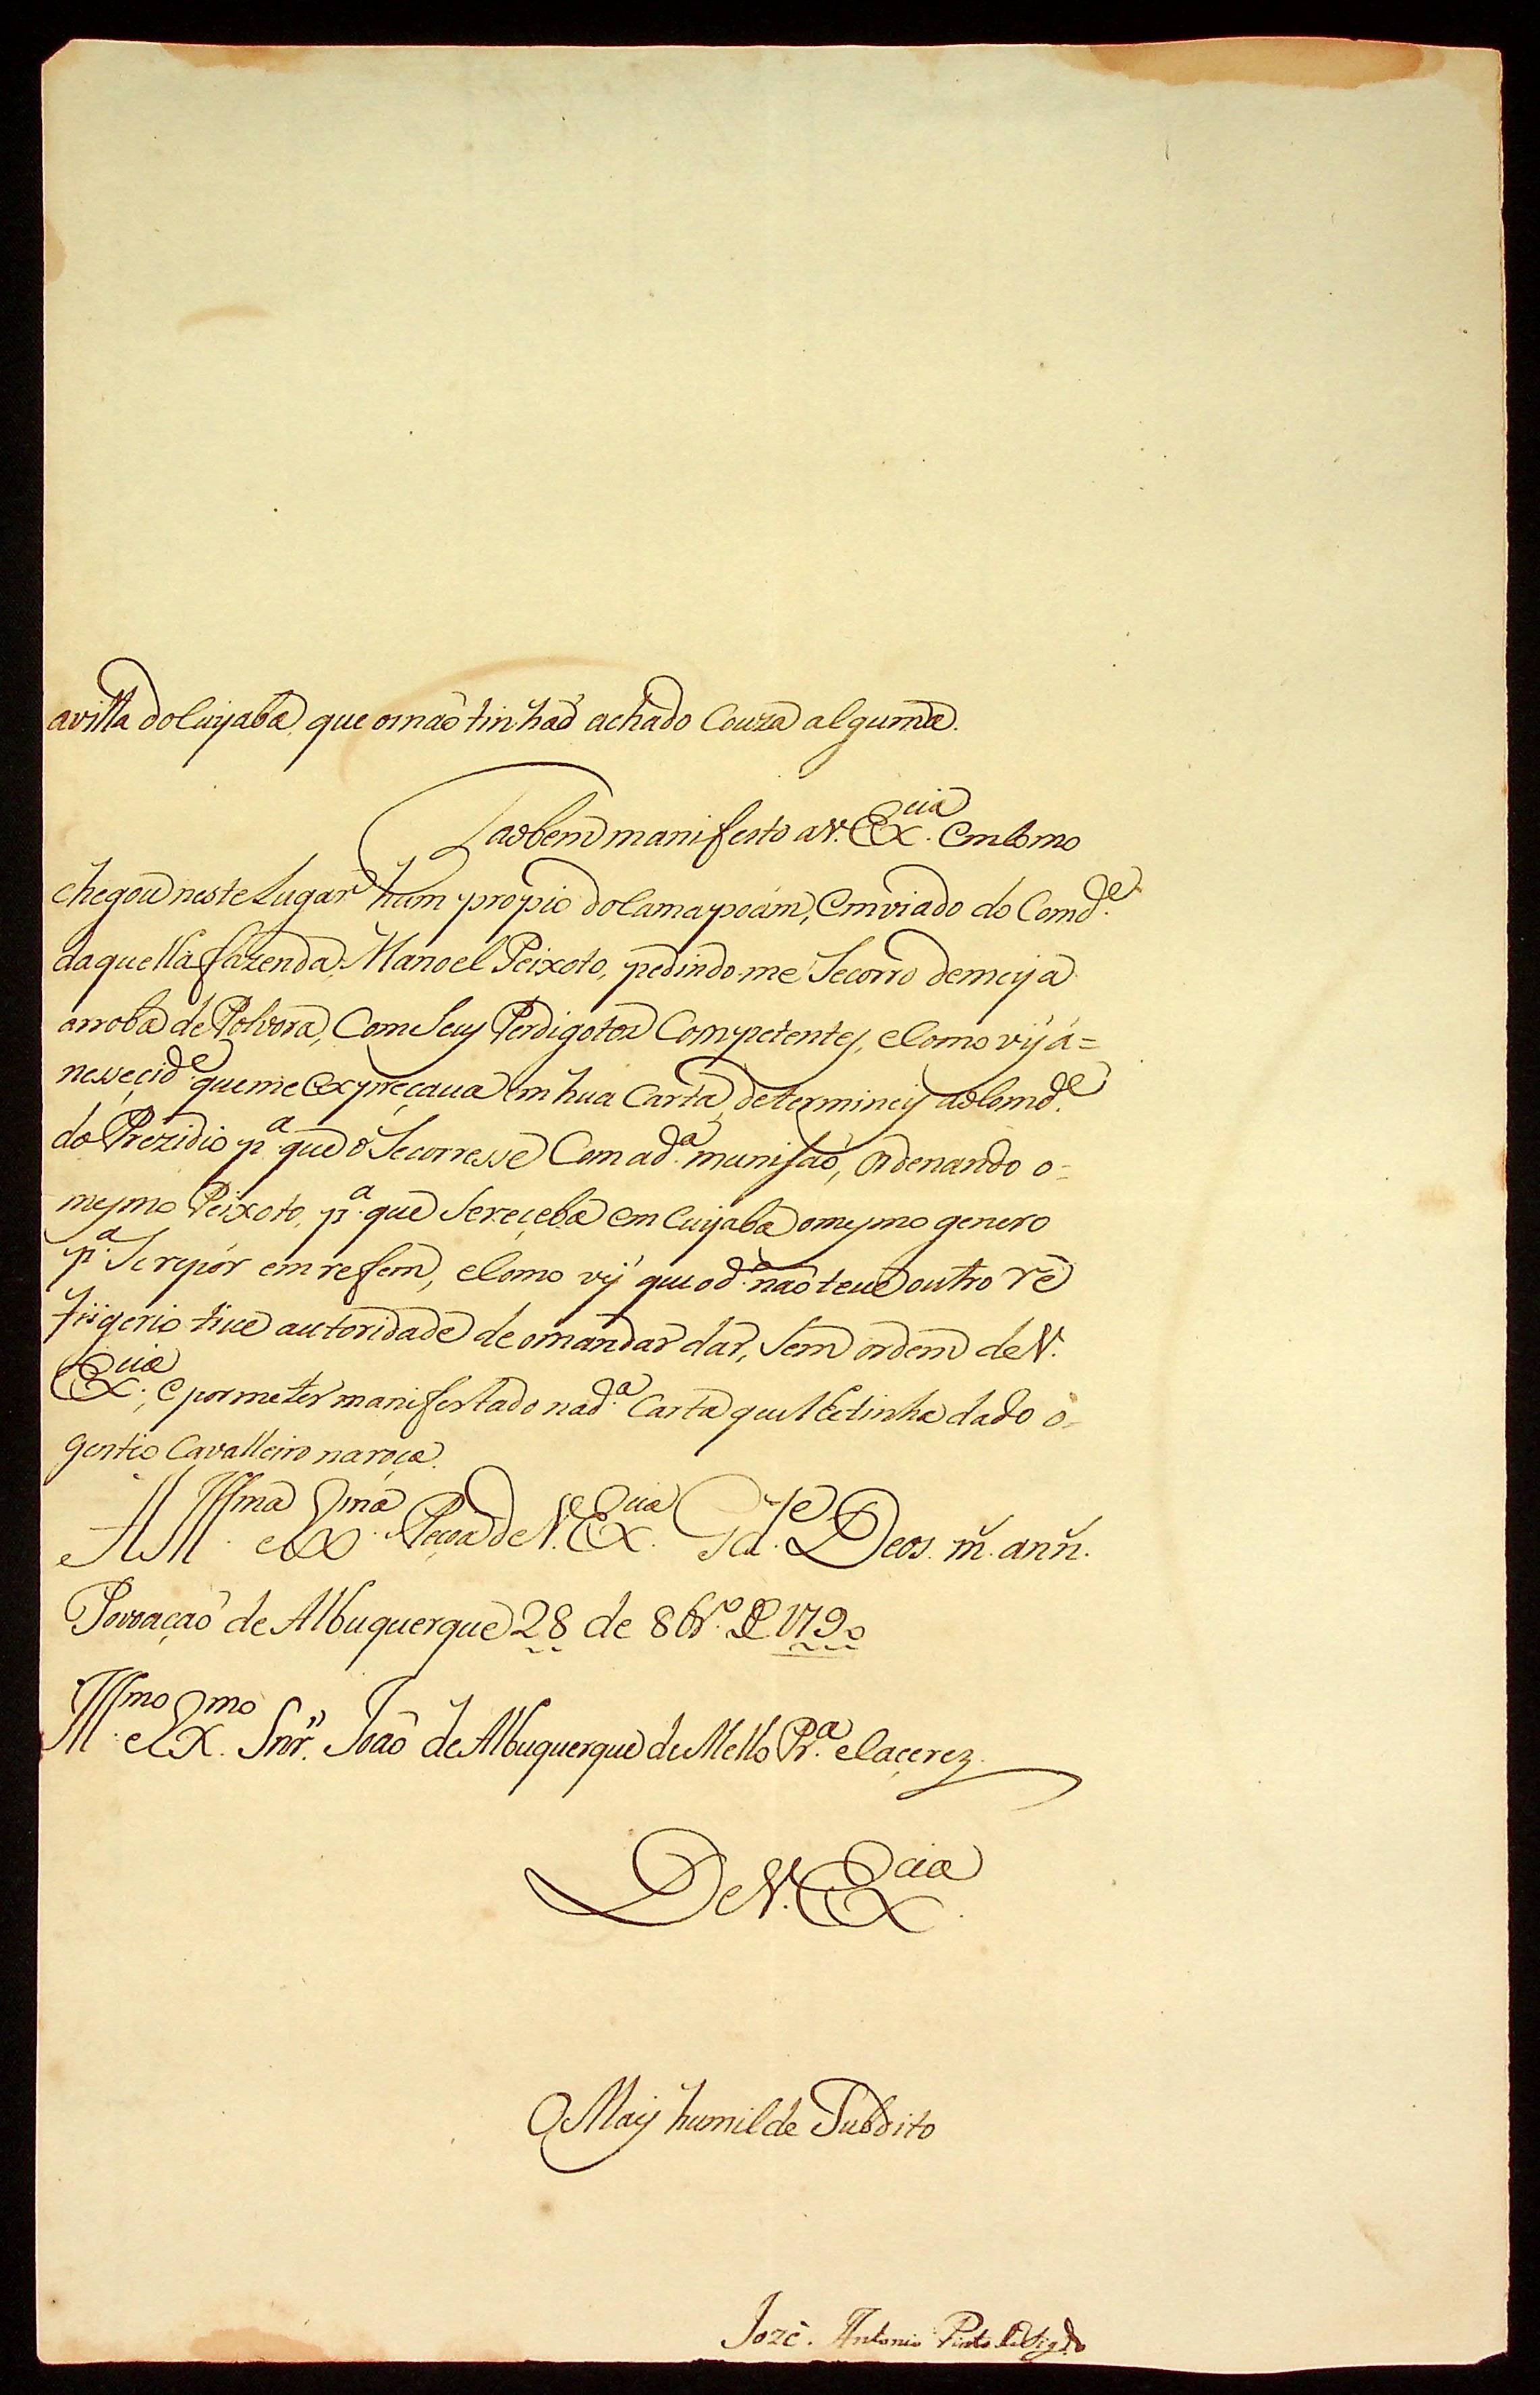 avilla doCuyabá, que o não tinhaõ achado Couza alguma.
Taobem manifesto a V. Ex.cia emComo
chegou neste Lugar hum propio doCamapoám, Emviado do Comd.e
daquella fazenda, Manoel Peixoto, pedindo-me Secorro demeya
arroba de Polvora, Com Seuz Perdigotos Competentez, eComo vij á=
nesseçid.e que me Expreçava em hua Carta, determiney aoComd.e
do Prezidio p.a que o Secorresse Com ad.a munisaõ, Ordenando o=
mezmo Peixoto, p.a que Sereçeba em Cuyabá omezmo genero
p.a Se repór em refem, eComo vij que od.o naõ teve outro re
frigerio tive autoridade de omandar dar, Sem ordem de V.
Ex.cia, e por meter manifestado nad.a Carta que lhe tinha dado o=
gentio Cavalleiro naroça.
A Ill.ma eEx.ma Peçoa de V. Ex.cia G.de Deos. m. ann.
Povoaçaõ de Albuquerque 28 de 8br.o de 1790
Ill.mo eEx.mo Snr. Joaõ de Albuquerque de Mello Pr.a eCaçerez
De V. Ex.cia
O Maiz humilde Subdito
Jozé. Antonio Pinto de Figd.o